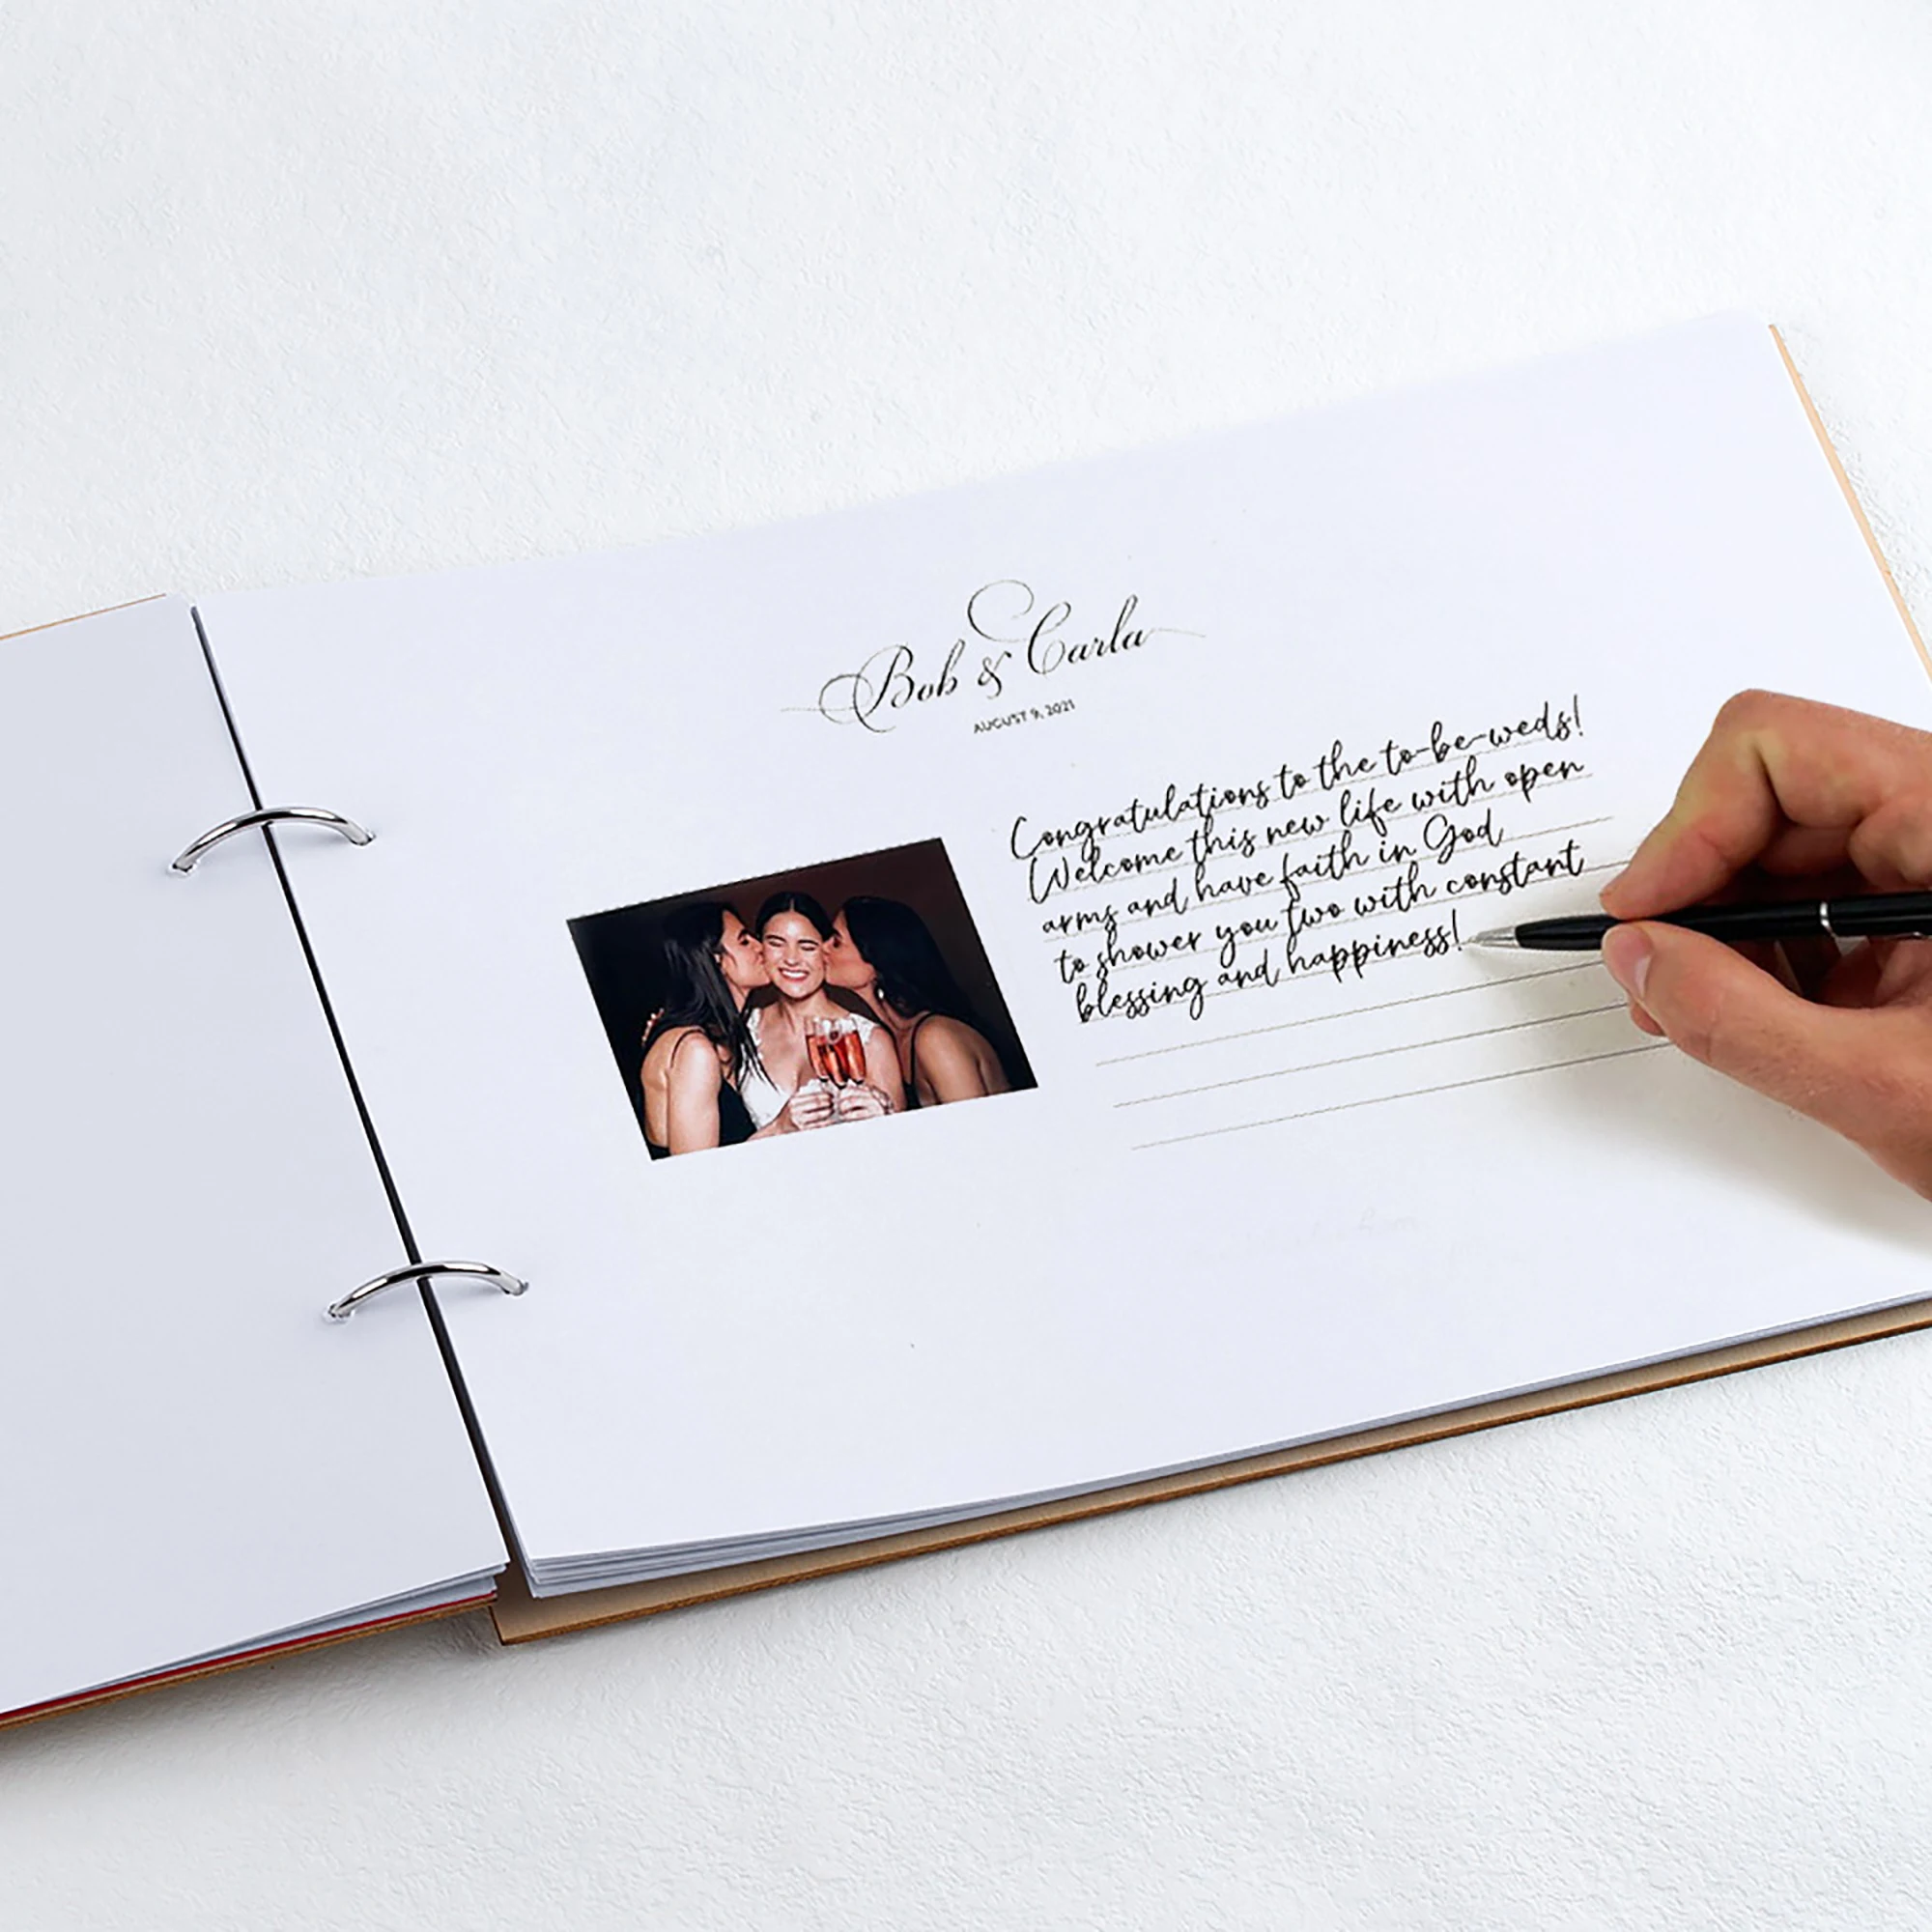 Bob & Carla
AUGUST 9, 2021
Congratulations to the to-be-weds!
Welcome this new life with open
arms and have faith in God
to shower you two with constant
blessing and happiness!